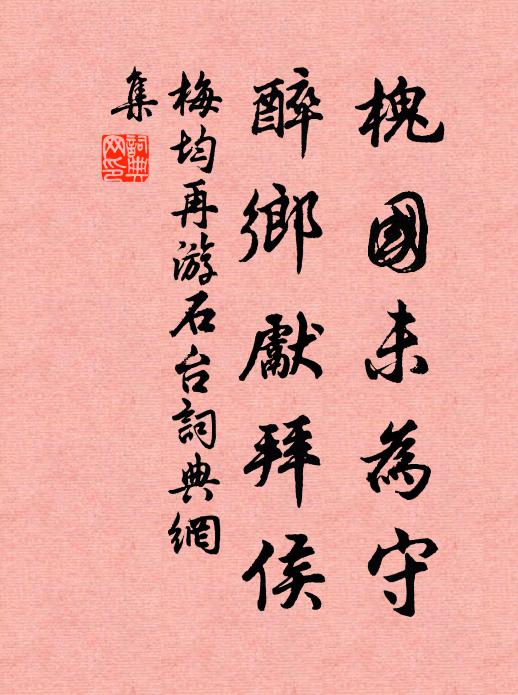 槐國未為守
醉鄉獻拜侯
梅均再游石台詞典網
集
詞典
网印